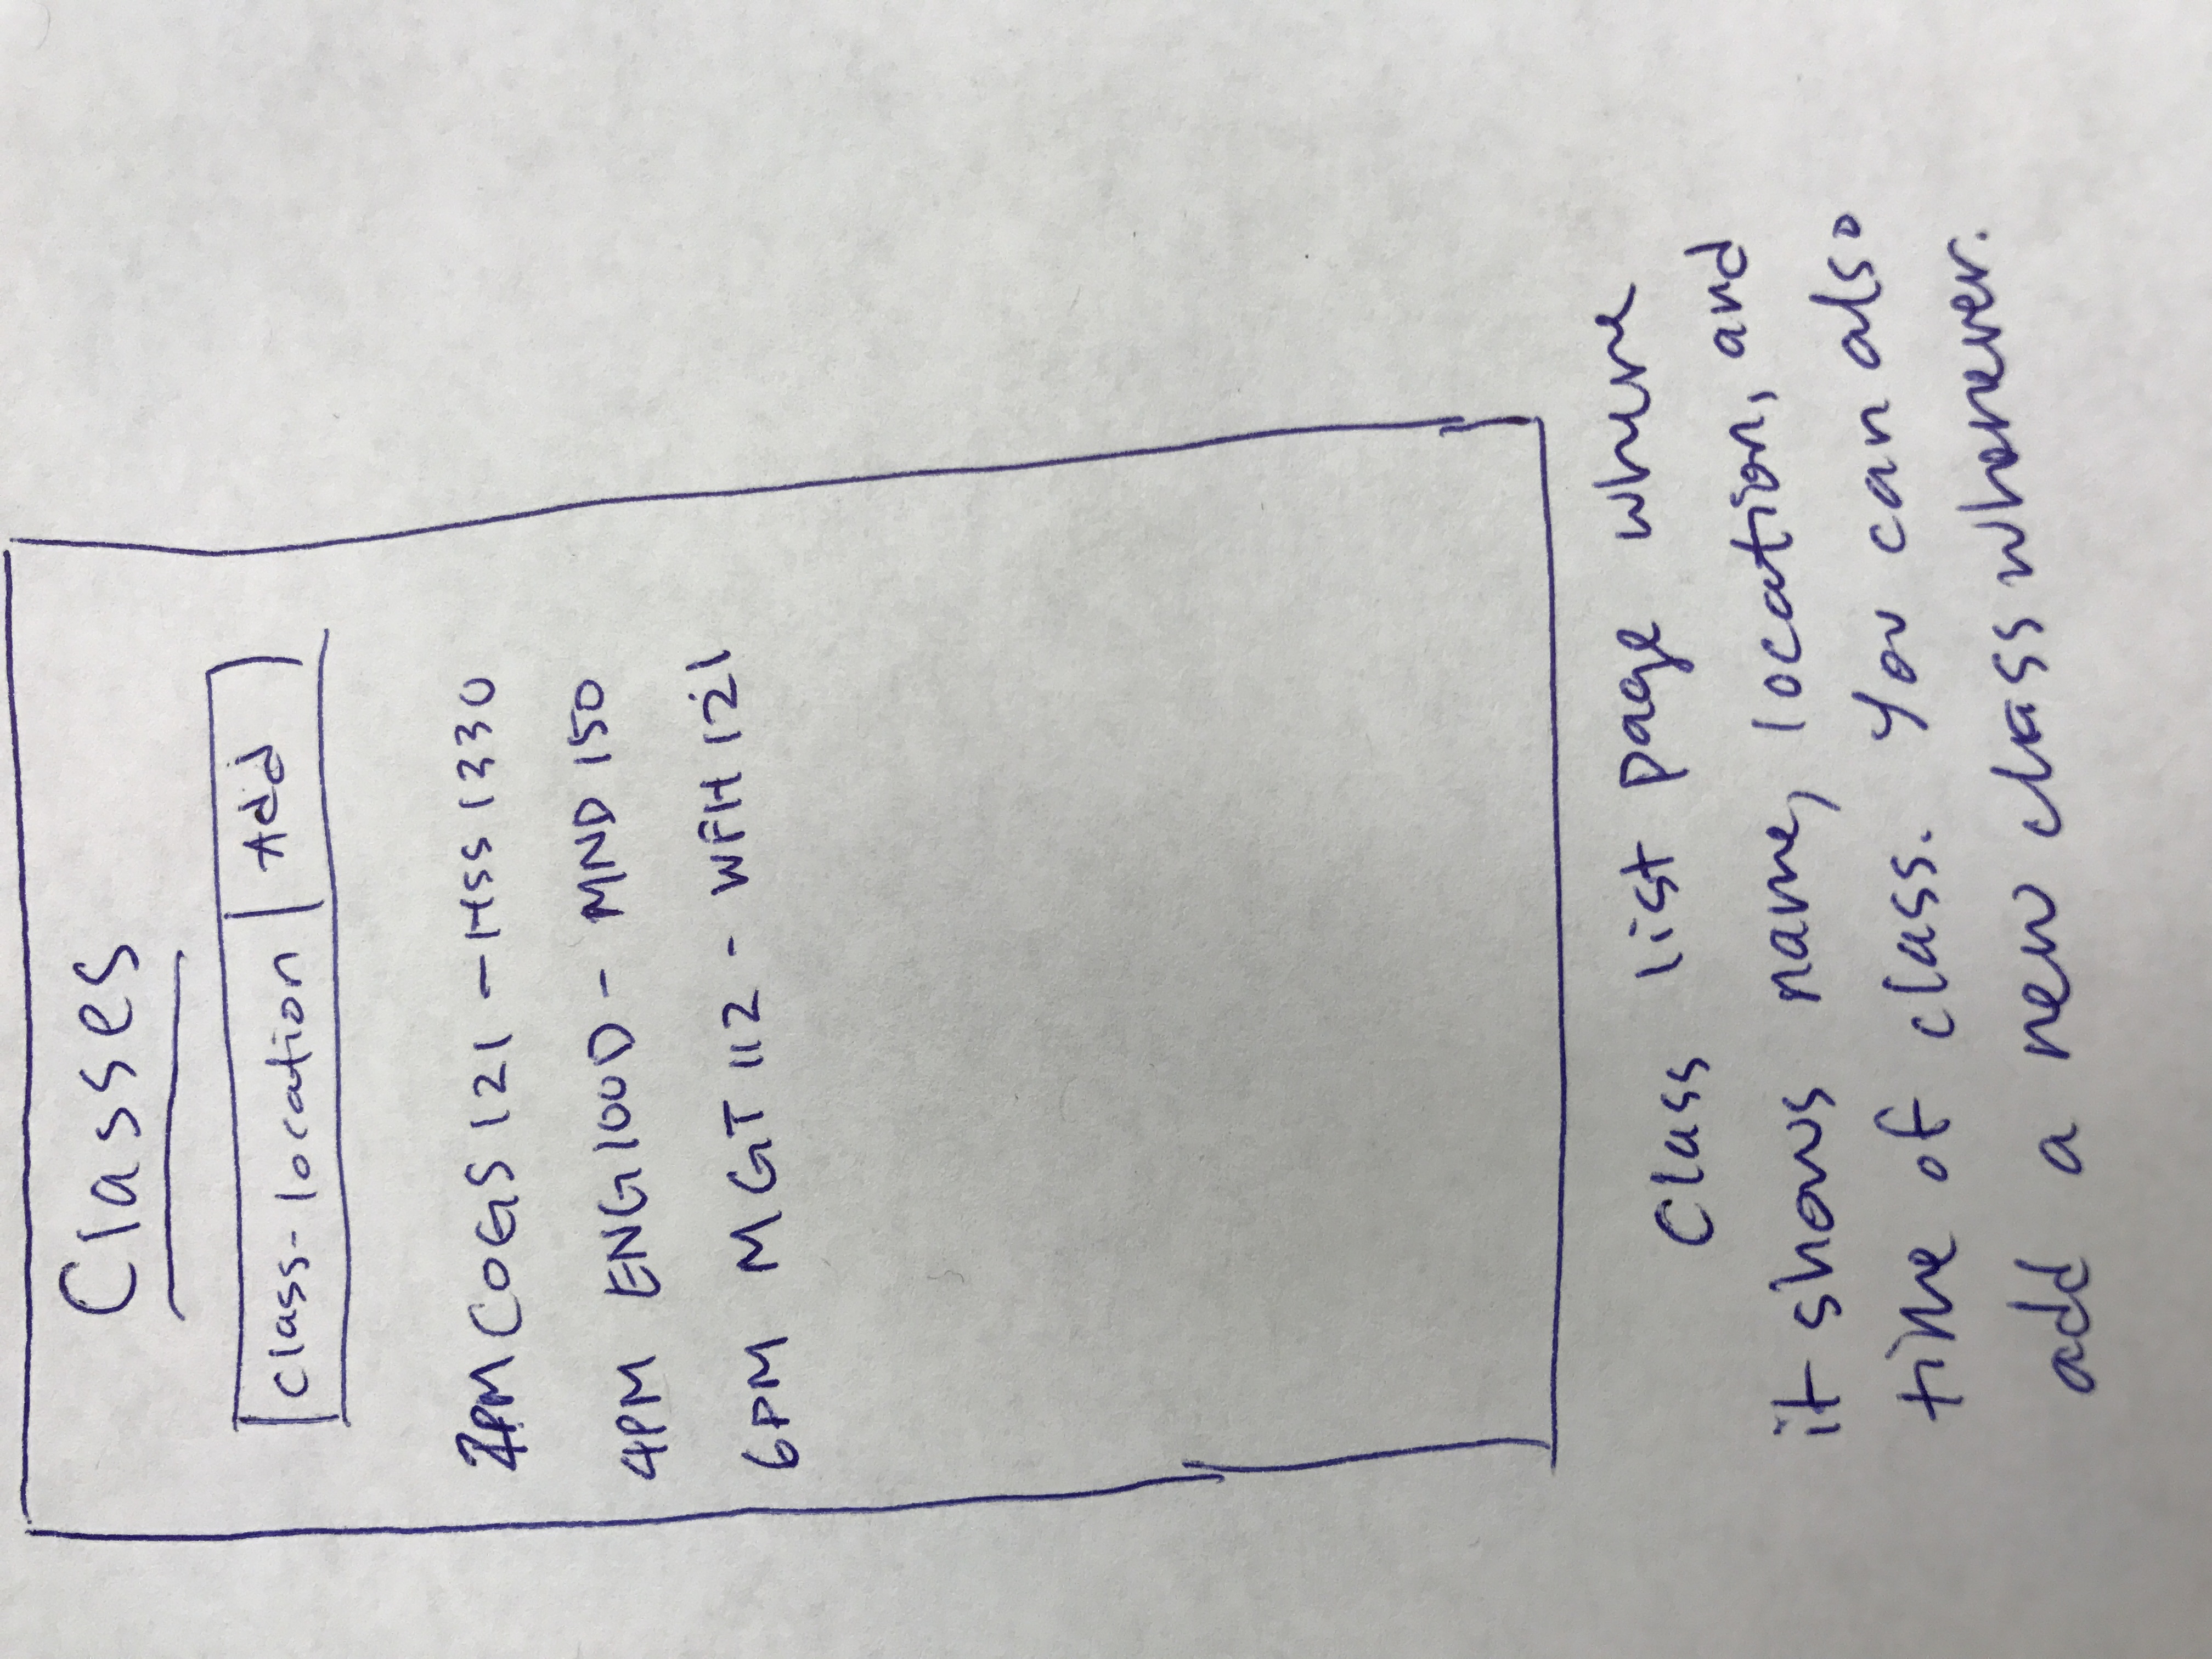 Classes
class-location Add
2PM COGS 121 - HSS 1330
4PM ENG100D - MND 150
6PM MGT 112 - WFH 121
Class list page where
it shows name, location, and
time of class. You can also
add a new class whenever.